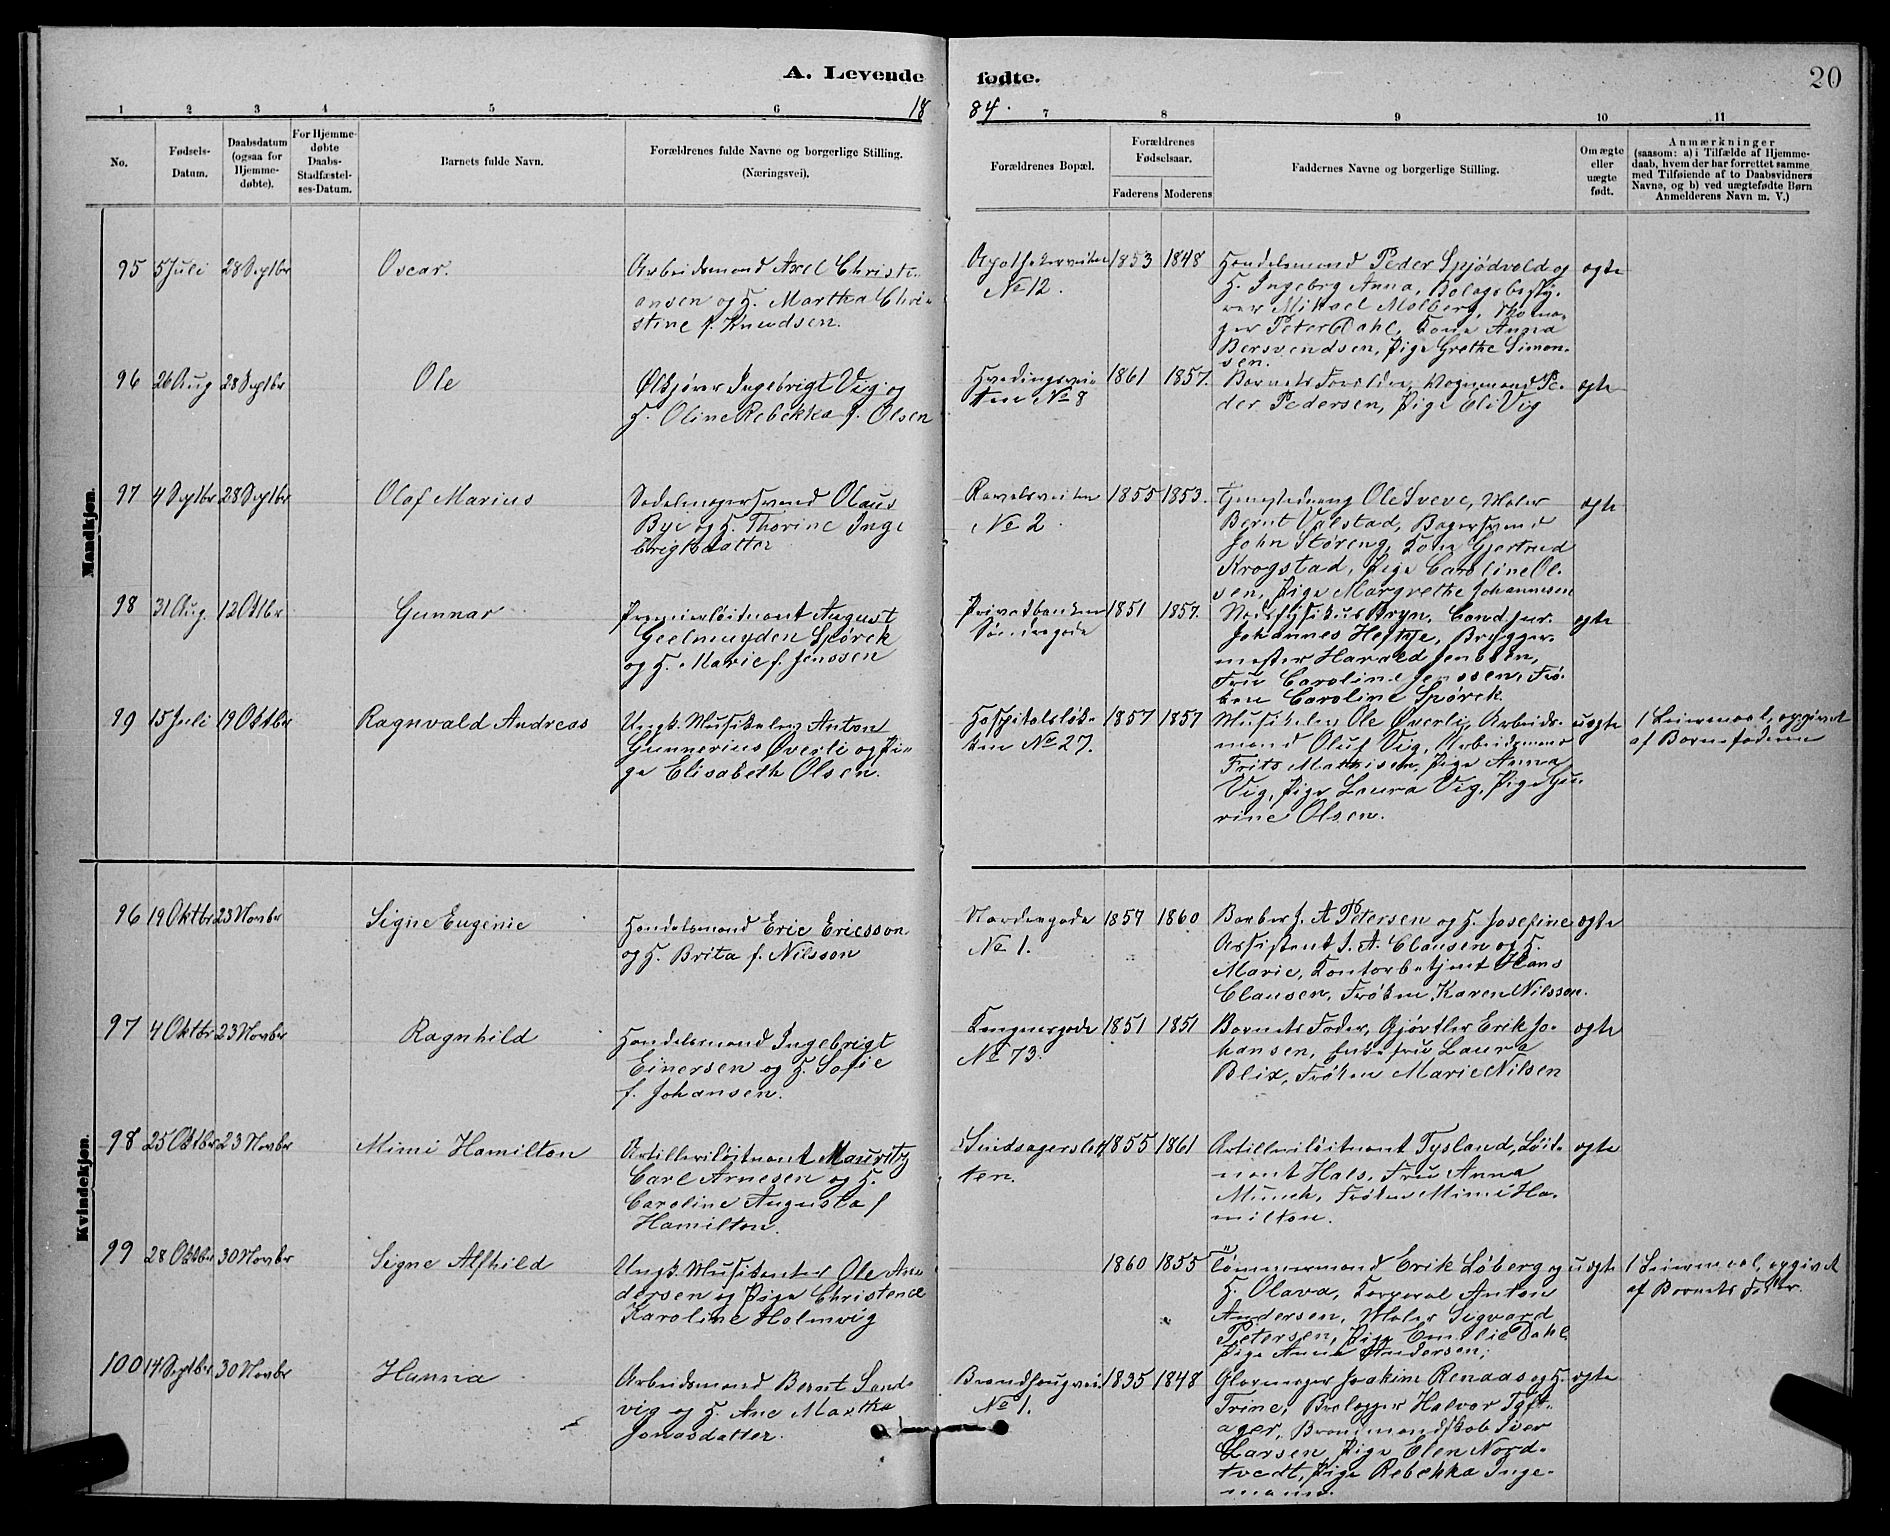 A. Levende fødte. 20
1884.
1 2 3 4 5 6 7 8 9 10 11
No.
Fødsels-Datum.
Daabsdatum (ogsaa for Hjemmedøbte).
For Hjemmedøbte Daabs-Stadfæstelses-Datum.
Barnets fulde Navn.
Forældrenes fulde Navne og borgerlige Stilling.
(Næringsvei).
Forældrenes Bopæl.
Forældrenes Fødselsaar.
Faderens Moderens
Faddernes Navne og borgerlige Stilling.
Om ægte eller uægte født.
Anmærkninger
(saasom: a) i Tilfælde af Hjemmedaab, hvem der har forrettet samme med Tilføiende af to Daabsvidners Navne, og b) ved uægtefødte Børn Anmelderens Navn m. V.)
Mandkjøn.
95 5 Juli 28 Septbr Oscar.
Arbeidsmand Axel Christi-
ansen og H. Martha Chri-
stine f. Knudsen.
Apothekerveiten
No 12.
1853 1848
Handelsmand Peder Spjødvold og
H. Ingebrg Anna, Bolagsbesty-
rer Mikael Molberg,
Peter Dahl, Kone Anna
Bersvendsen, Pige Grethe Simon-
sen.
ægte
96 26 Aug 28 Septbr Ole
Ølkjører Ingebrigt Vig og
H. Oline Rebekka f. Olsen
Hvedingsvei-
ten No 8
1861 1857.
Barnets Forældre, Vognmand Pe-
der Pedersen, Pige Eli Vig
ægte
97 4 Septbr 28 Septbr Olaf Marius
Sadelmagersvend Olaus
Bye og H. Thorine Inge
brigtsdatter
Ravelsveiten
No 2.
1855 1853.
Ole Sveve, Maler
Bernt Valstad, Bagersvend
John Støreng, Kone Gjertrud
Krogstad, Pige Caroline Ol-
sen, Pige Margrethe Johannesen
ægte
98 31 Aug. 12 Oktbr Gunnar
Premierløitnant August
Geelmuyden Spørck
og H. Marie f. Jenssen
Privatbanken
Søndregade
1851 1857.
Stadsfysikus Bryn, Cand jur.
Johannes Heftye, Brygger-
mester Harald Jenssen,
Fru Caroline Jenssen, Frø-
ken Caroline Spørck.
ægte
99 15 Juli 19 Oktbr Ragnvald Andreas
Ungk. Musikelev Anton
Gunnerius Øverli og Pi-
ge Elisabeth Olsen.
Hospitalsløk-
ken No 27.
1857 1857
Musikelev Ole Øverli, Arbeids-
mand Oluf Vig, Arbeidsmand
Frits Mathisen, Pige Anna
Vig, Pige Laura Vig, Pige
rine Olsen.
uægte
1 Leiermaal, opgivet
af Barnefaderen
Kvindekjøn.
96 19 Oktbr 23 Novbr Signe Eugenie
Handelsmand Eric Ericsson
og H. Brita f. Nilsson
Nordregade
No 1.
1857 1860
Barber J. A Petersen og H. Josefine
Assistent J. A. Clausen og H.
Marie, Kontorbetjent Hans
Clausen, Frøken Karen Nilsson.
ægte
97 4 Oktbr 23 Novbr Ragnhild
Handelsmand Ingebrigt
Einersen og H. Sofie
f. Johansen.
Kongensgade
No 73.
1851 1851
Barnets Fader, Gjørtler Erik Jo-
hansen, Enkefru Laura
Blix, Frøken Marie Nilsen
ægte
98 25 Oktbr 23 Novbr Mimi Hamilton
Artilleriløitnant Mauritz
Carl Arnesen og H.
Caroline Augusta f
Hamilton.
ten.
1855 1861
Artilleriløitnant Tysland, Løit-
nant Hals, Fru Anna
Munch, Frøken Mimi Ha-
milton.
ægte
99 28 Oktbr 30 Novbr Signe Alfhild
Ungk. Musikanten Ole An-
dersen og Pige Christence
Karoline Holmvig
1860 1855
Tømmermand Erik Løberg og
H. Olava, Korporal Anton
Andersen, Maler Sigvard
Petersen, Pige Emelie Dahl,
Pige Anna Andersen;
uægte
1 Leiermaal, opgivet
af Barnets Fader.
100 14 Septbr 30 Novbr Hanna
Arbeidsmand Bernt Sand-
vig og H. Ane Martha
Jonasdatter.
No 1.
1835 1848
Glarmager Joakim Renaas og H.
Trine, Brolægger Halvor
Iver
Larsen, Pige Elen Nord-
tvedt, Pige Rebekka Inge-
mann.
ægte